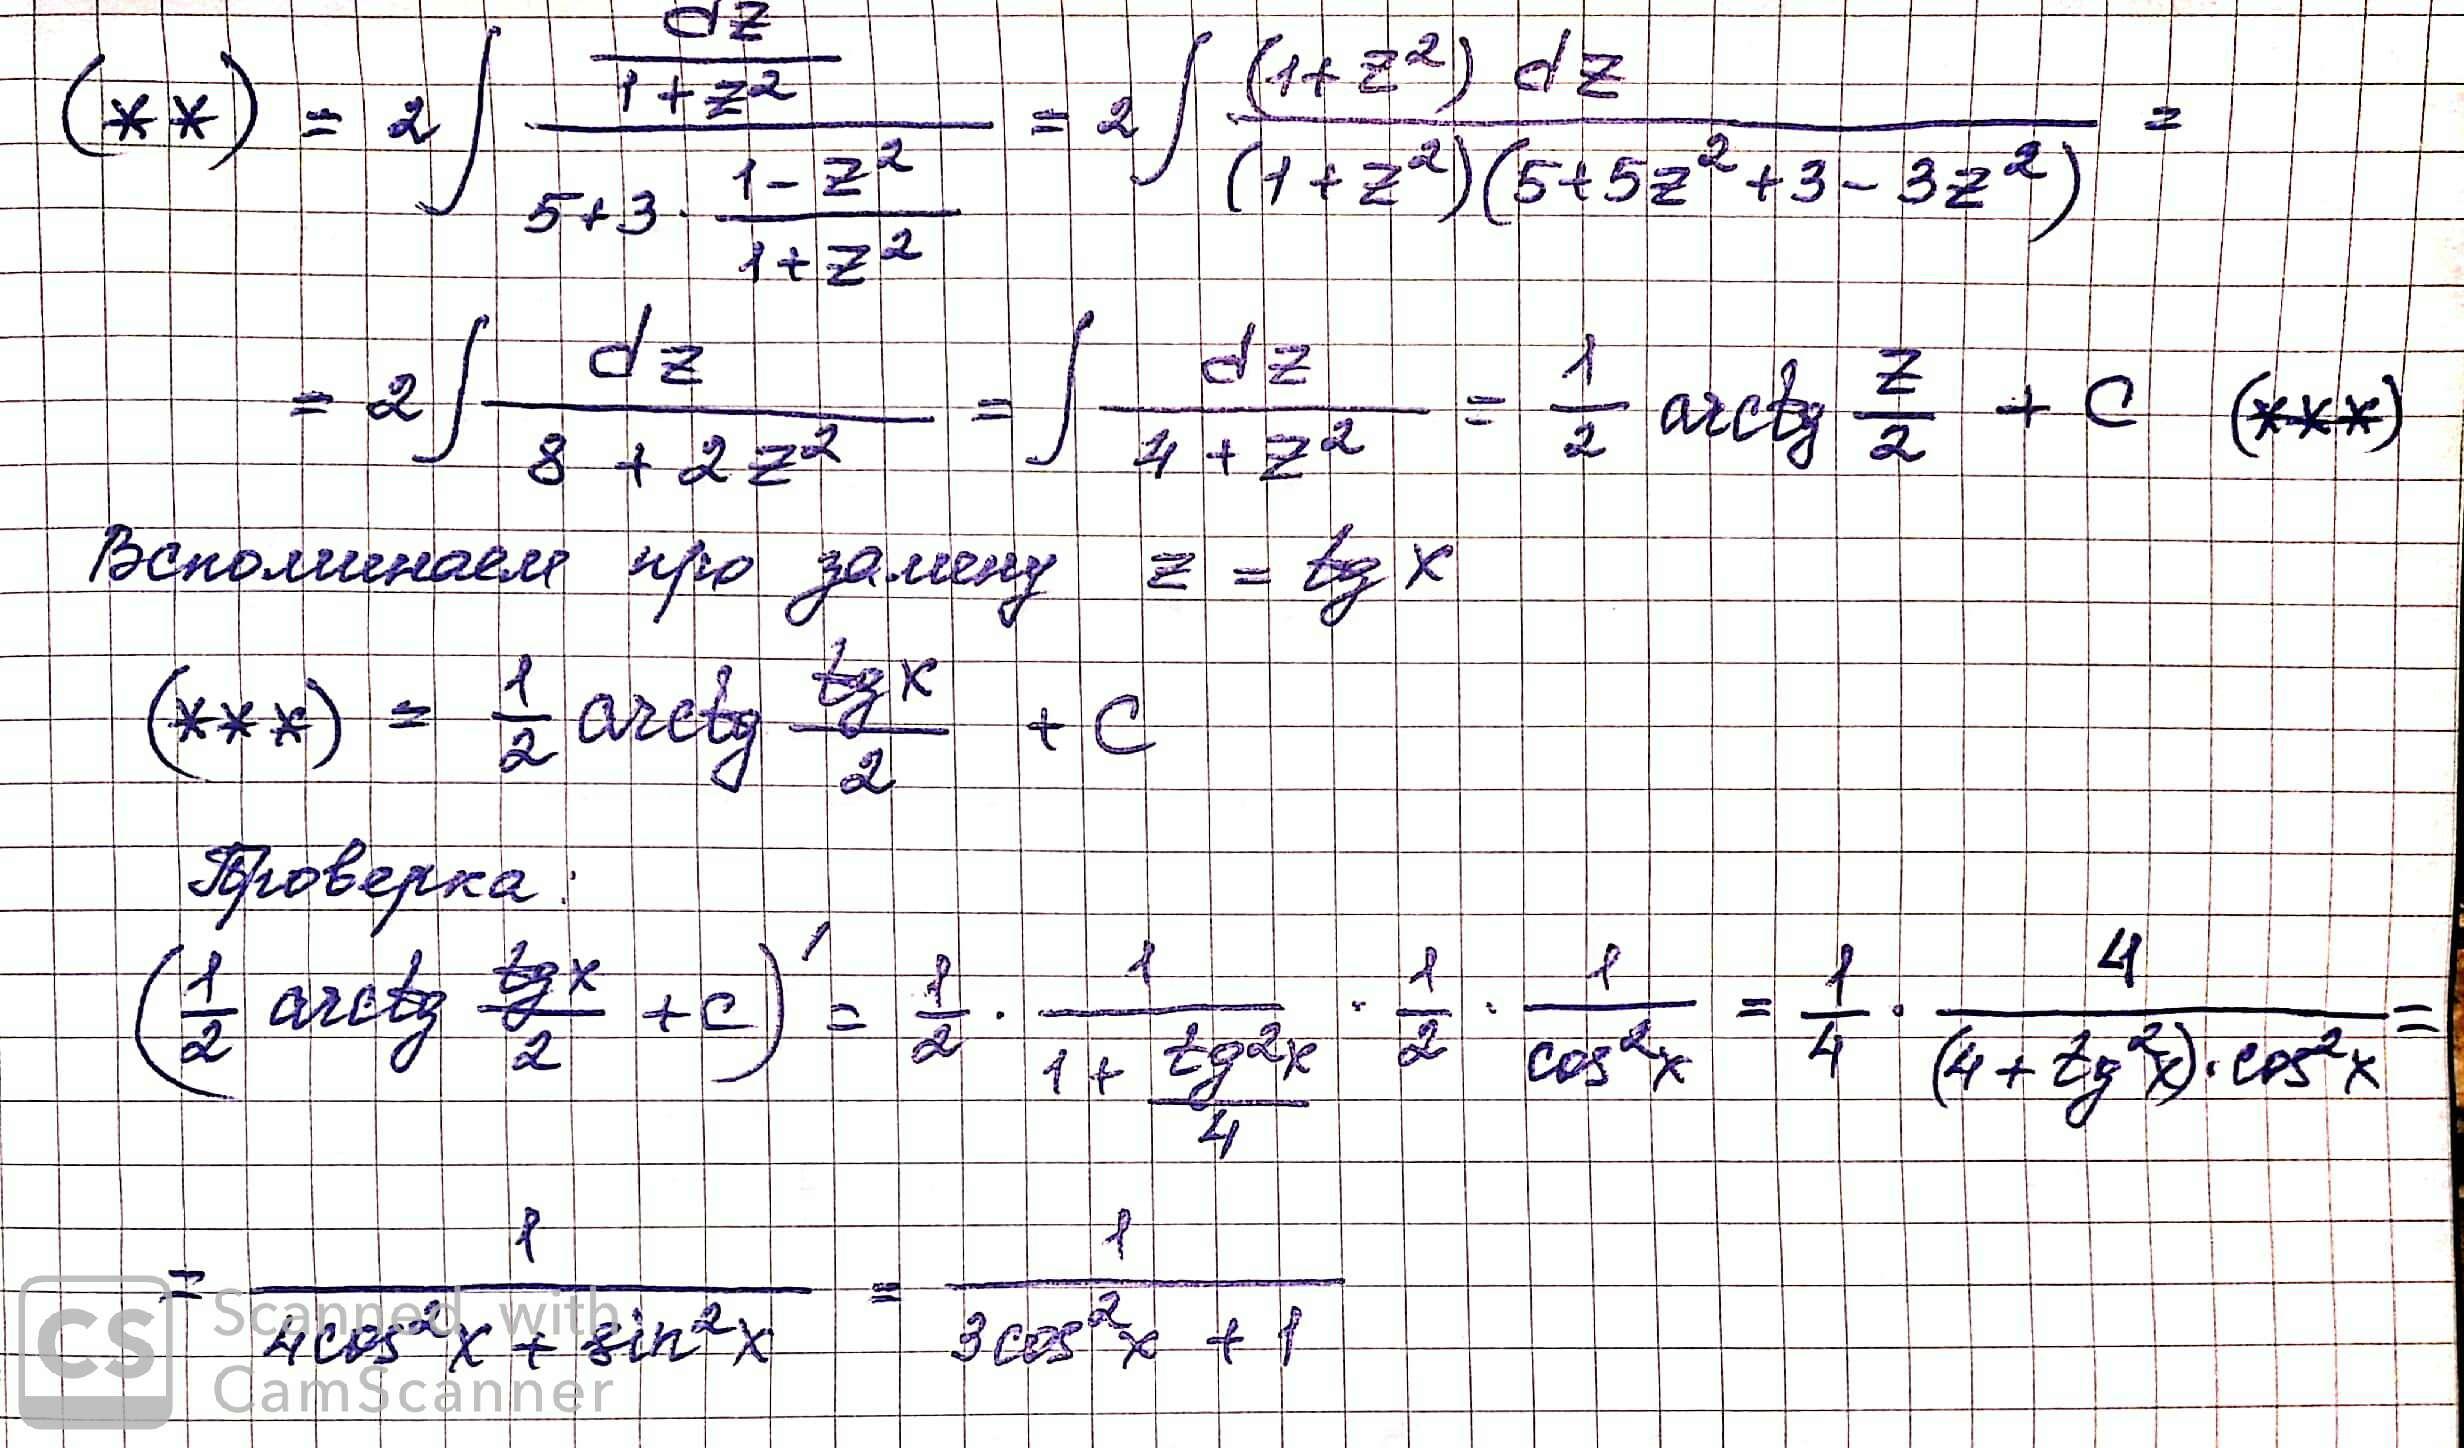 (**) = 2 ∫ (dz/(1+z²)) / (5+3·(1-z²)/(1+z²)) = 2 ∫ ((1+z²) dz) / ((1+z²)(5+5z²+3-3z²)) =
= 2 ∫ dz/(8+2z²) = ∫ dz/(4+z²) = 1/2 arctg z/2 + C (***)
Вспоминаем про замену z = tg x
(***) = 1/2 arctg (tg x)/2 + C
Проверка:
(1/2 arctg (tg x)/2 + C)' = 1/2 · 1/(1+(tg²x)/4) · 1/2 · 1/(cos²x) = 1/4 · 4/((4+tg²x)·cos²x) =
= 1/(4cos²x + sin²x) = 1/(3cos²x + 1)
CS Scanned with
CamScanner